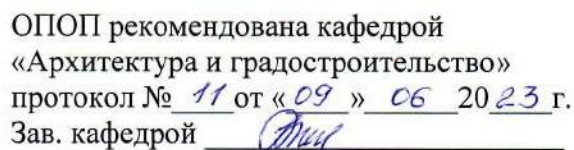 ОПОП рекомендована кафедрой
«Архитектура и градостроительство»
протокол № 11 от « 09 » 06 2023 г.
Зав. кафедрой